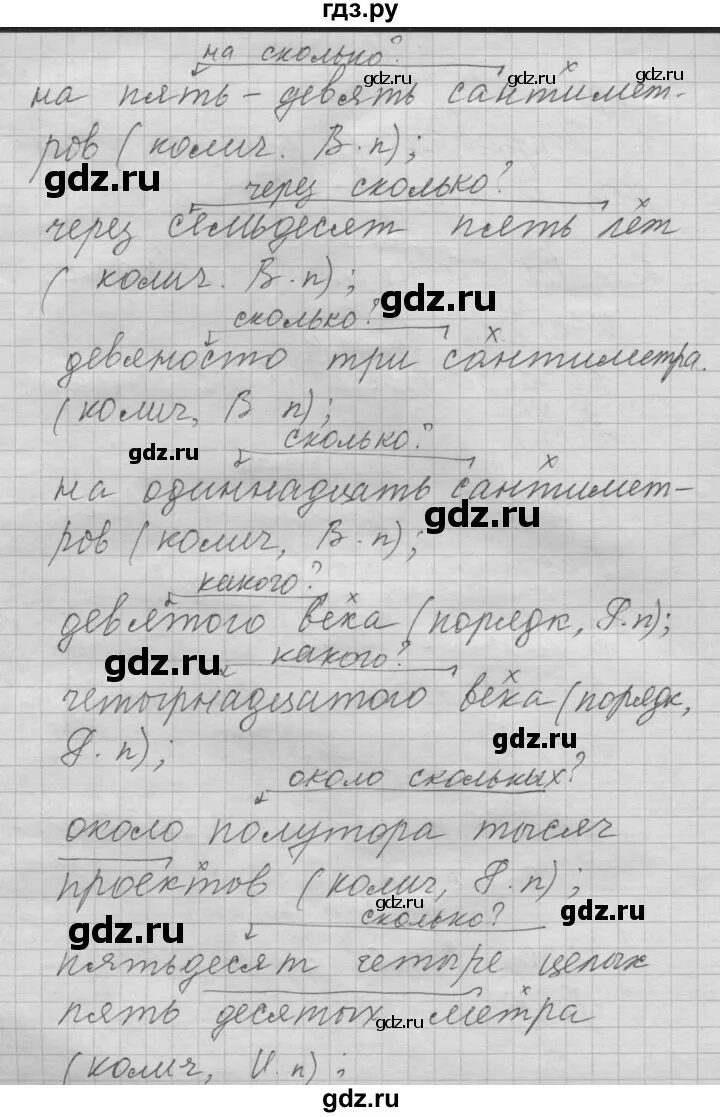 гдз.ру
на сколько?
gdz.ru gdz.ru х gdz.ru
на пять-девять сантимет-
ров (колич. В.п);
gdz.ru через сколько? gdz.ru
х
через семьдесят пять лет
(колич. В.п);
gdz.ru
сколько?
х
девяносто три сантиметра.
(колич, В п);
gdz.ru сколько? gdz.ru
х
на одиннадцать сантимет-
gdz.ru
ров (колич, В.п);
какого?
х
девятого века (порядк, Р.п);
gdz.ru какого?
х
четырнадцатого века (порядк,
gdz.ru
Р.п);
около скольких?
gdz.ru gdz.ru
около полутора тысяч
х
проектов (колич, Р.п);
gdz.ru
gdz.ru сколько? gdz.ru
пятьдесят четыре целых
х
пять десятых метра
gdz.ru
(колич, И.п);
gdz.ru